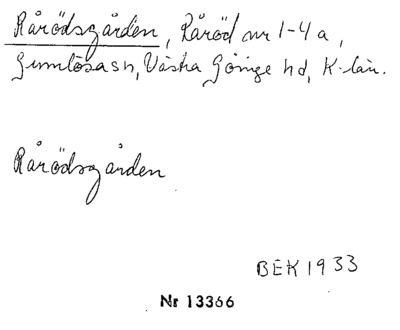 Rårödsgården, Råröd nr 1-4 a,
Gumlösa sn, Västra Göinge hd, K-län.
Rårödsgården
BEK 1933
Nr 13366